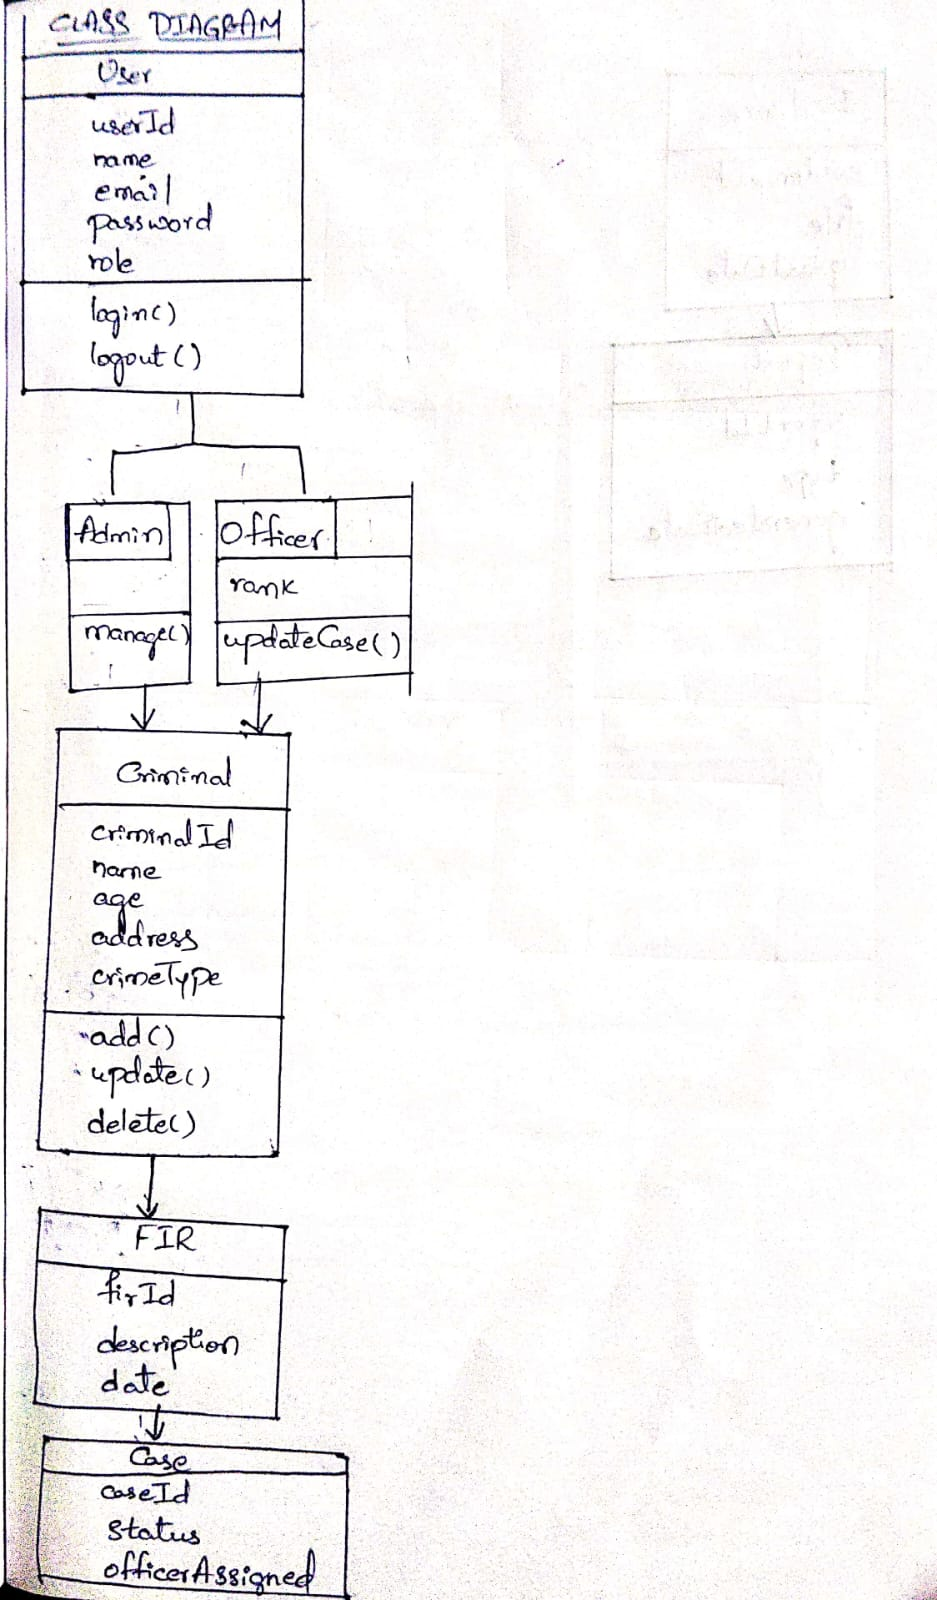 CLASS DIAGRAM
User
userId
name
email
password
role
login()
logout()
Admin
Officer
rank
manage()
updateCase()
Criminal
criminalId
name
age
address
crimeType
add()
update()
delete()
FIR
firId
description
date
Case
caseId
status
officerAssigned